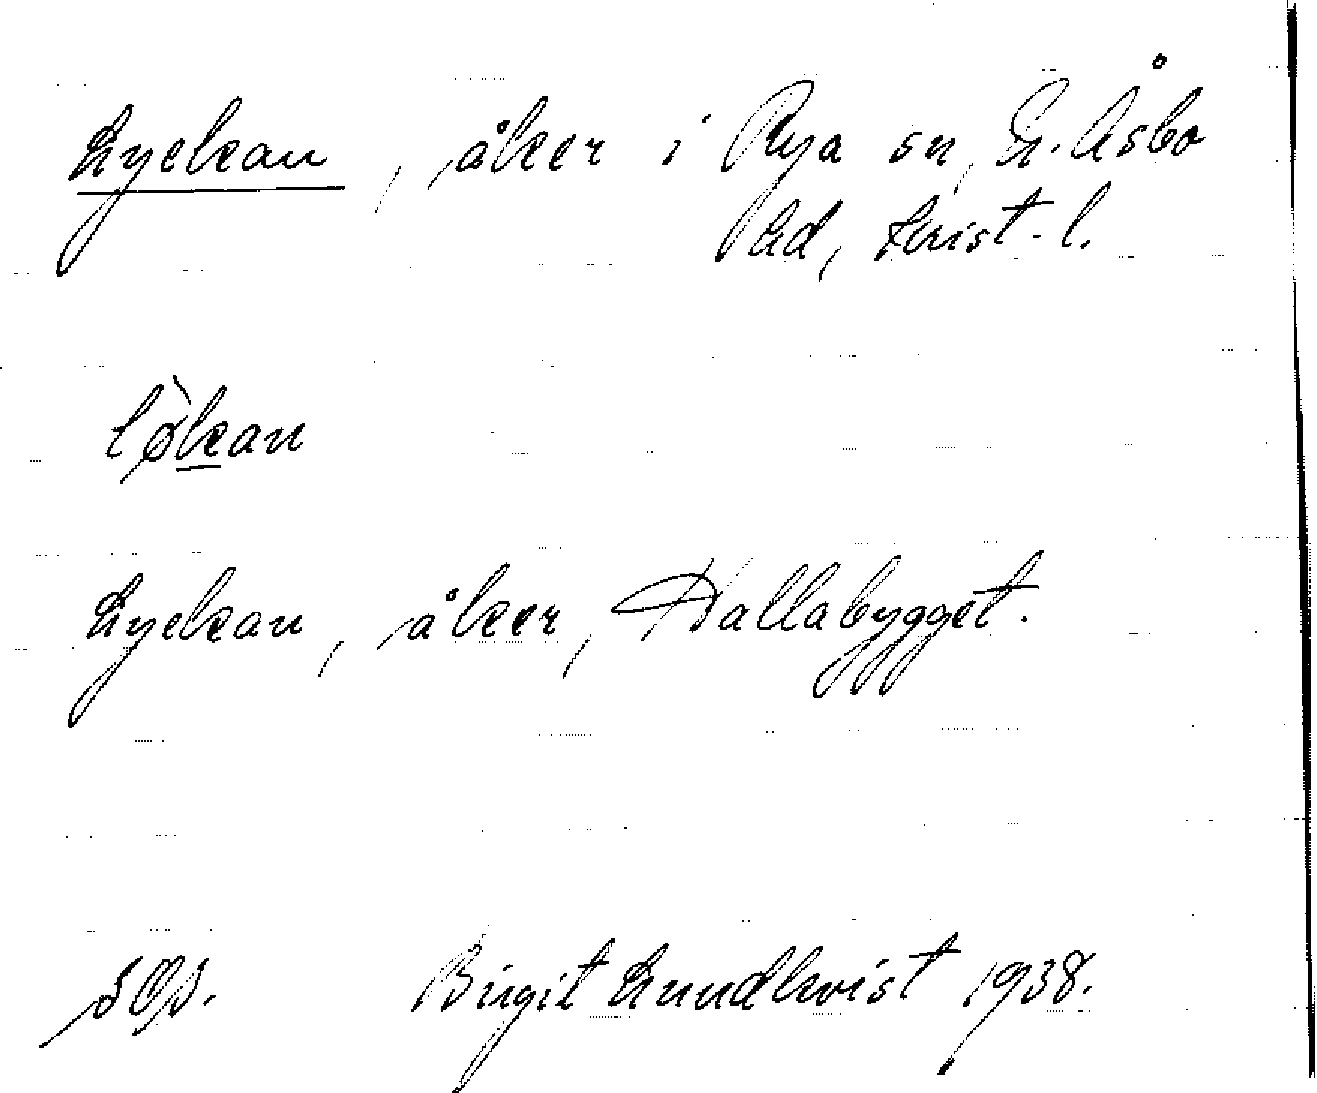 Lyckan, åker i Rya sn, S. Åsbo
hd, Krist-l.
lø̀kan
Lyckan, åker, Hallabygget.
Birgit Lundkvist 1938.